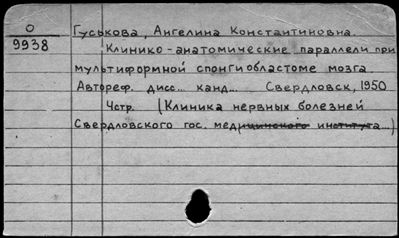 О
9938
Гуськова, Ангелина Константиновна.
Клинико-анатомические параллели при
мультиформной спонгиобластоме мозга
Автореф. дисс... канд... Свердловск, 1950
4стр. (Клиника нервных болезней
Свердловского гос. медицинского института...)